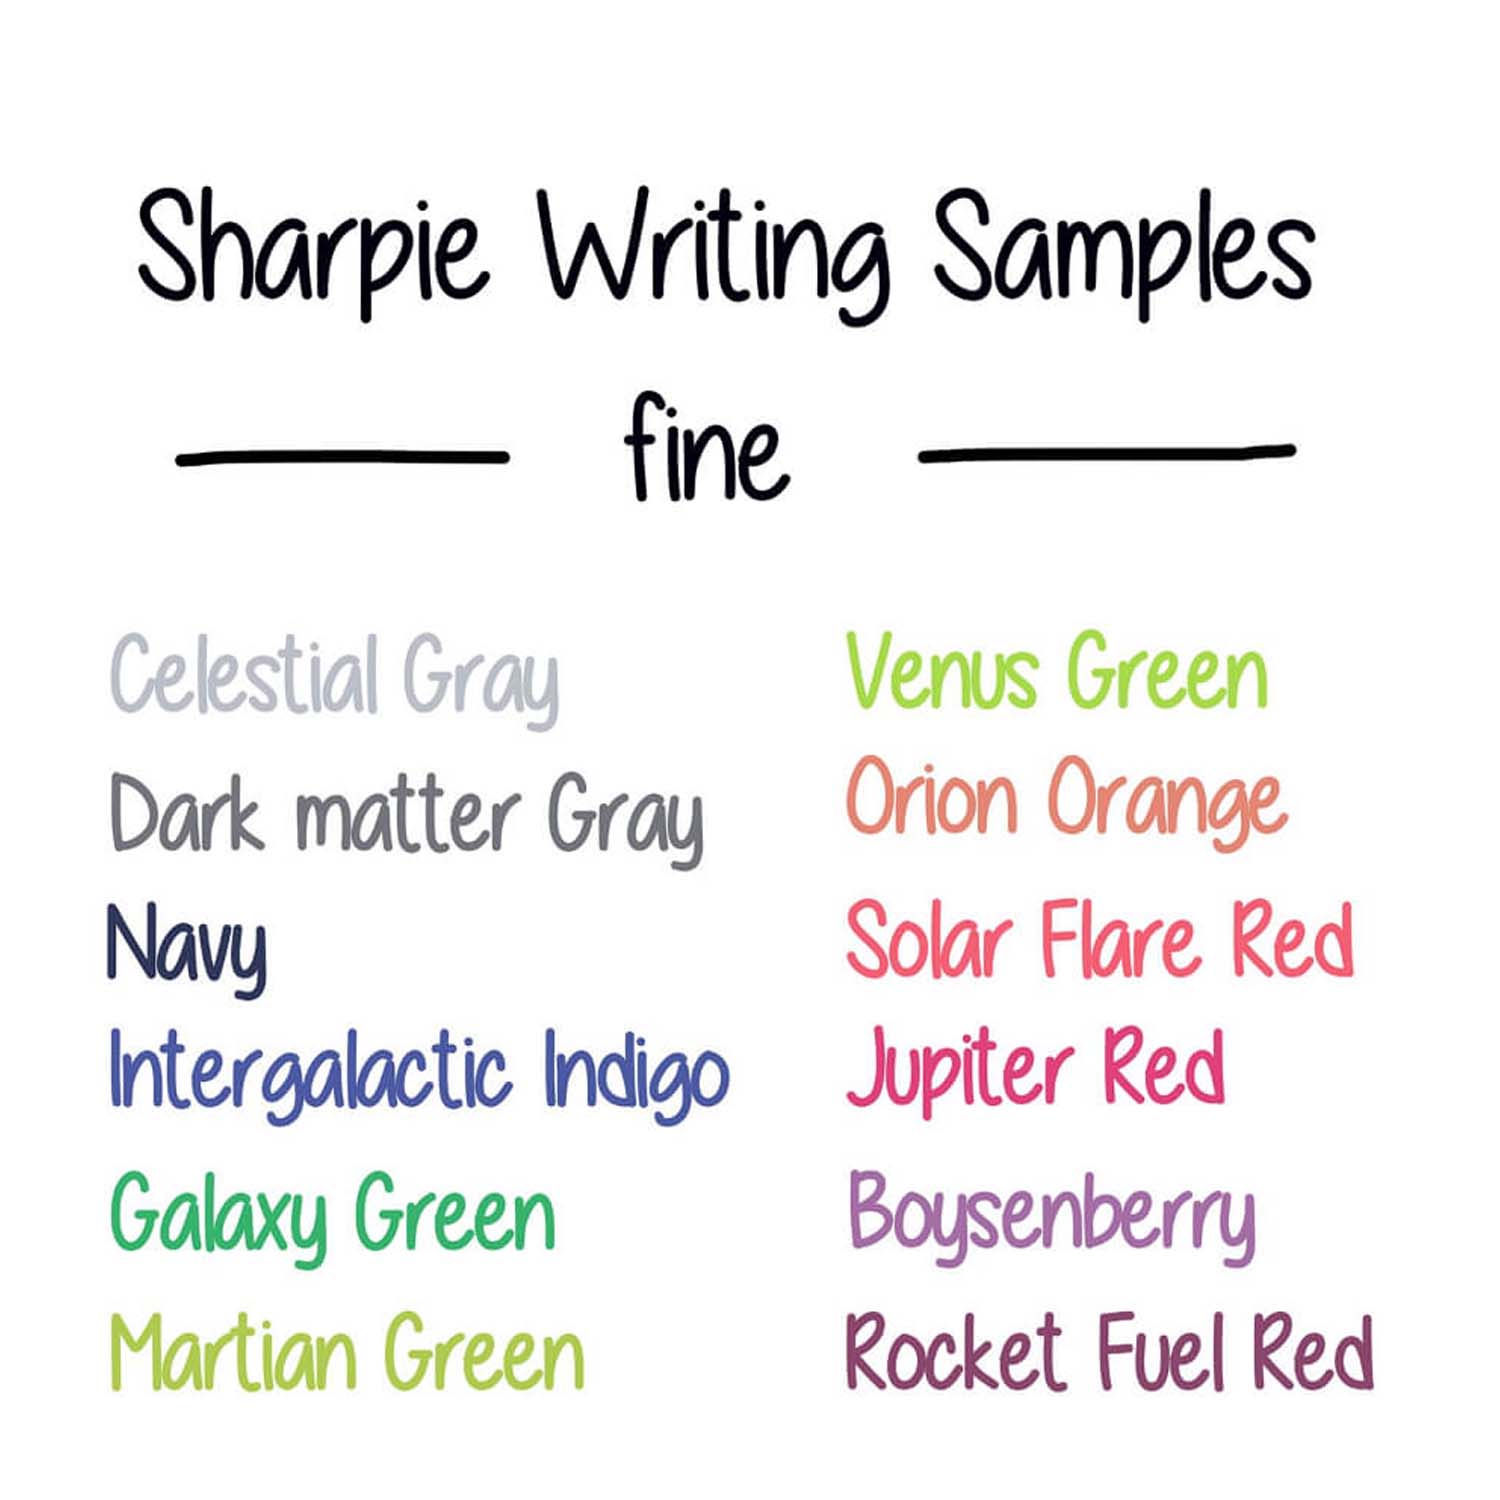 Sharpie Writing Samples
fine
Celestial Gray
Dark matter Gray
Navy
Intergalactic Indigo
Galaxy Green
Martian Green
Venus Green
Orion Orange
Solar Flare Red
Jupiter Red
Boysenberry
Rocket Fuel Red